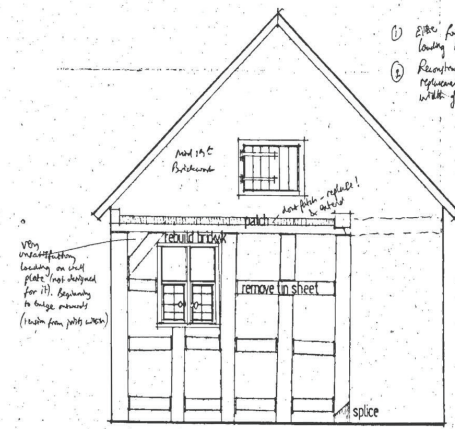 ① Either
loading
②
replacement
width of
Mid 19th
Brickwork
dont patch - replace!
patch
rebuild brickwk
very
unsatisfactory
loading on wall
plate (not designed
for it). Beginning
to bulge outwards
(tension from joists within)
remove tin sheet
splice